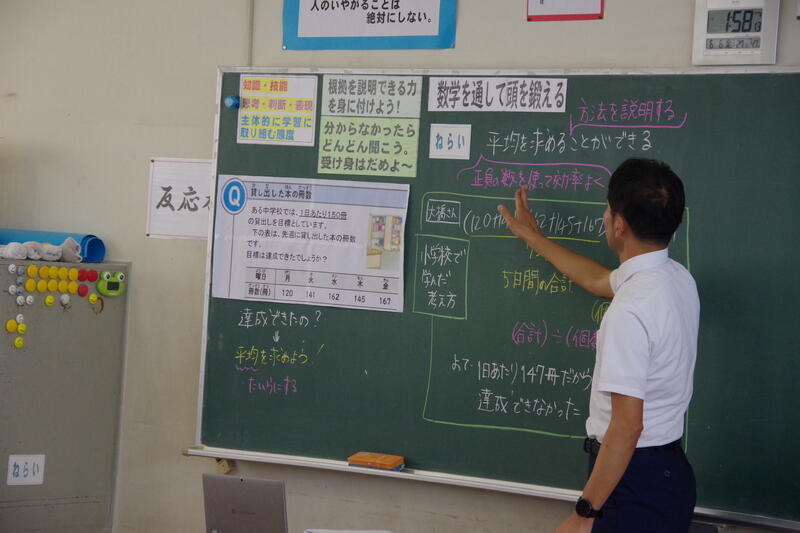 人のいやがることは
絶対にしない。
1:58
知識・技能
思考・判断・表現
主体的に学習に
取り組む態度
根拠を説明できる力
を身に付けよう！
分からなかったら
どんどん聞こう。
受け身はだめよ～
数学を通して頭を鍛える
方法を説明する
ねらい
平均を求めることができる
正負の数を使って効率よく
反応
Q 貸し出した本の冊数
ある中学校では、1日あたり150冊
の貸出しを目標としています。
下の表は、先週に貸し出した本の冊数
です。
目標は達成できたでしょうか？
曜日 月 火 水 木 金
冊数(冊) 120 141 162 145 167
達成できたの？
平均を求めよう！
たいらにする
大橋さん
(120+
2+145+167
小学校で
学んだ
考え方
5日間の合計
(合計)÷(個数
よって、1日あたり147冊だから
達成できなかった
ねらい